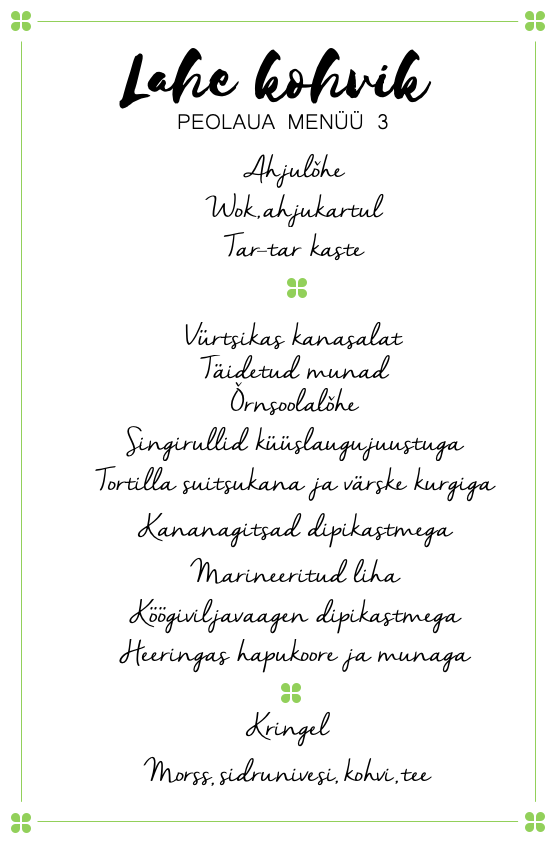 Lahe kohvik
PEOLAUA MENÜÜ 3
Ahjulǒhe
Wok,ahjukartul
Tar-tar kaste
Vürtsikas kanasalat
Täidetud munad
Ǒrnsoolalǒhe
Singirullid küüslaugujuustuga
Tortilla suitsukana ja värske kurgiga
Kananagitsad dipikastmega
Marineeritud liha
Köögiviljavaagen dipikastmega
Heeringas hapukoore ja munaga
Kringel
Morss, sidrunivesi, kohvi, tee